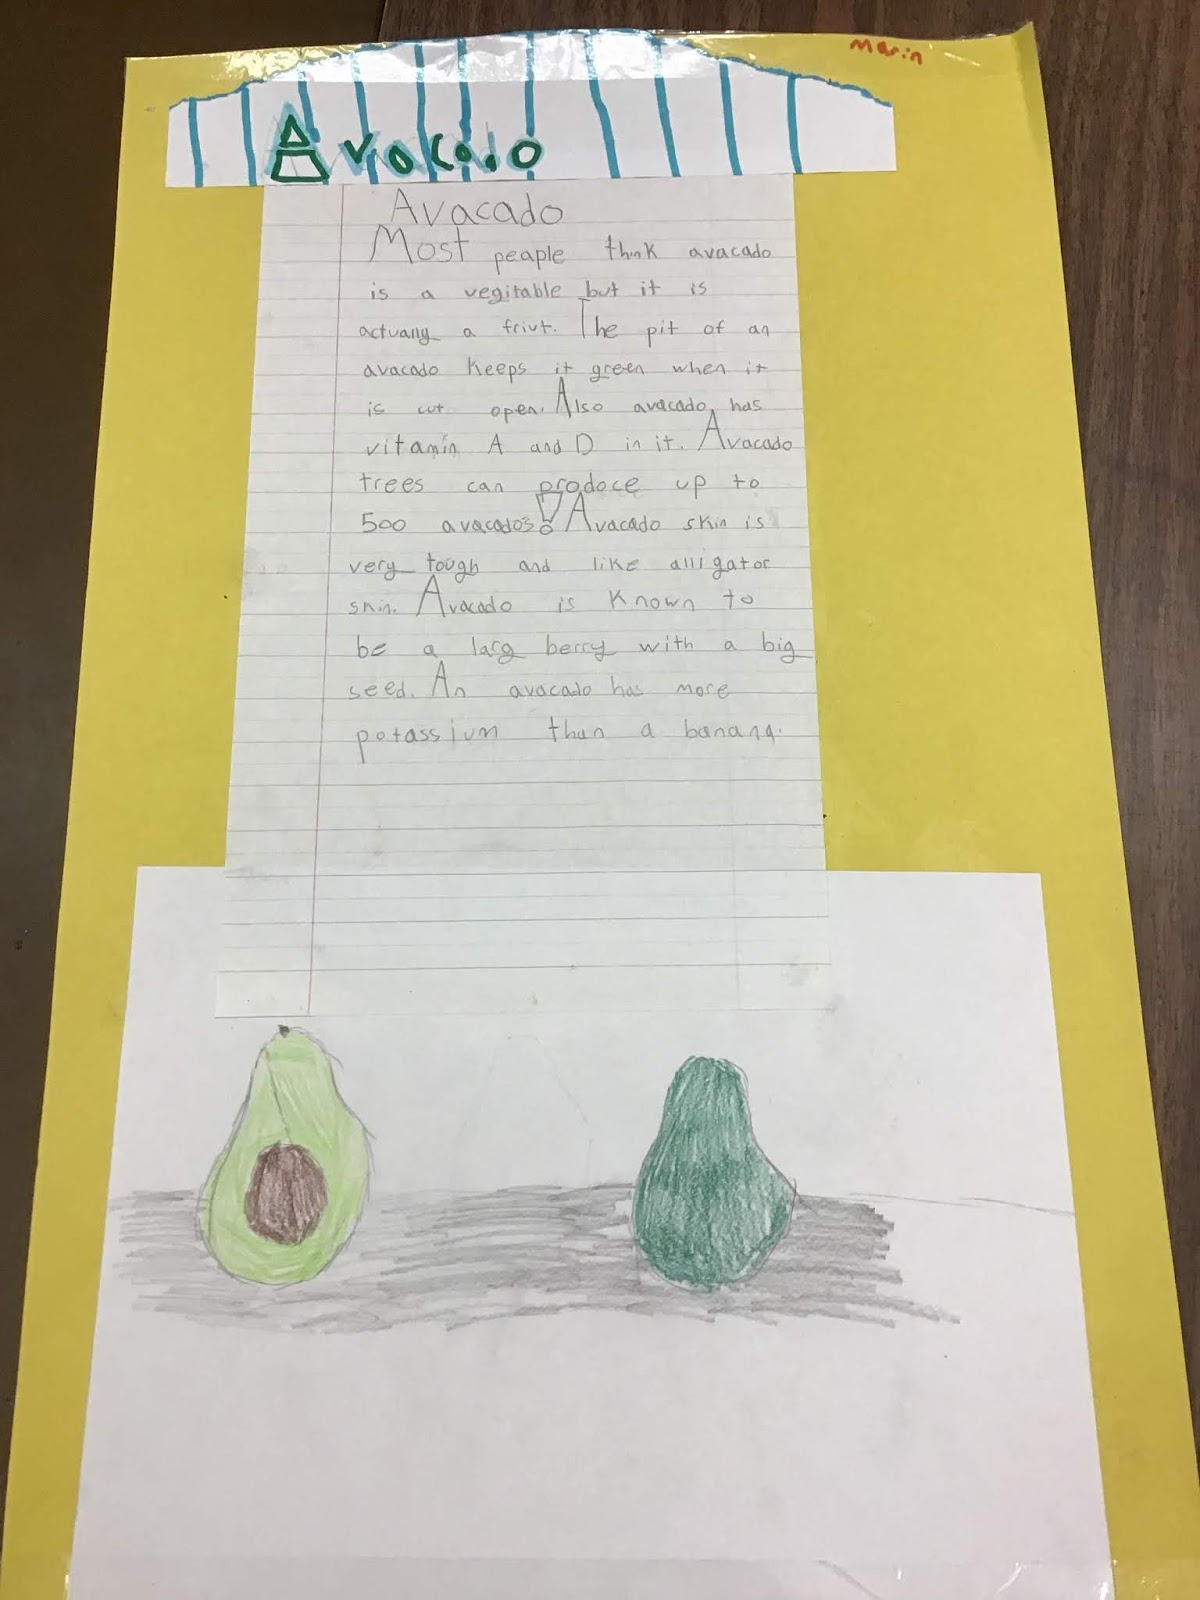 Marin
Avocado
Avacado
Most peaple think avacado
is a vegitable but it is
actually a friut. The pit of an
avacado keeps it green when it
is cut open. Also avacado has
vitamin A and D in it. Avacado
trees can prodoce up to
500 avacados! Avacado skin is
very tough and like alligator
skin. Avacado is known to
be a larg berry with a big
seed. An avacado has more
potassium than a banana.